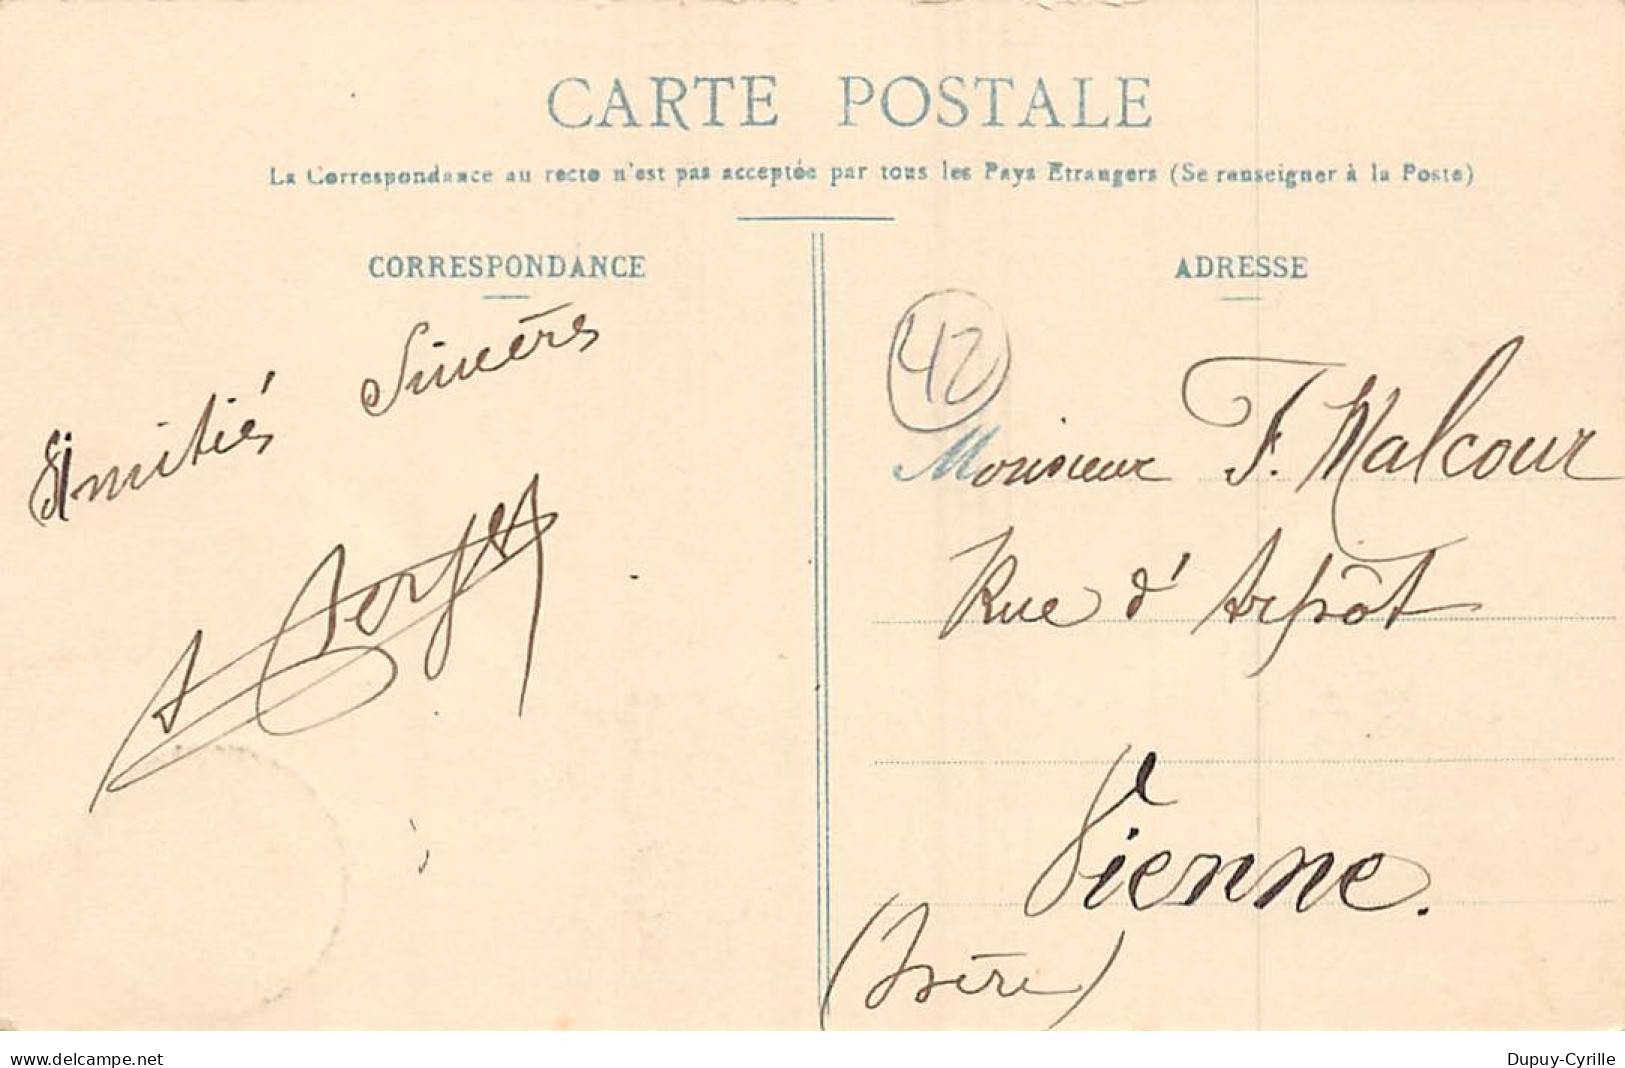 CARTE POSTALE
La Correspondance au recto n'est pas acceptée par tous les Pays Etrangers (Se renseigner à la Poste)
CORRESPONDANCE
Amitiés Sincères
ADRESSE
42
Monsieur F. Malcour
Rue d'Arpôt
Vienne.
(Isère)
www.delcampe.net
Dupuy-Cyrille